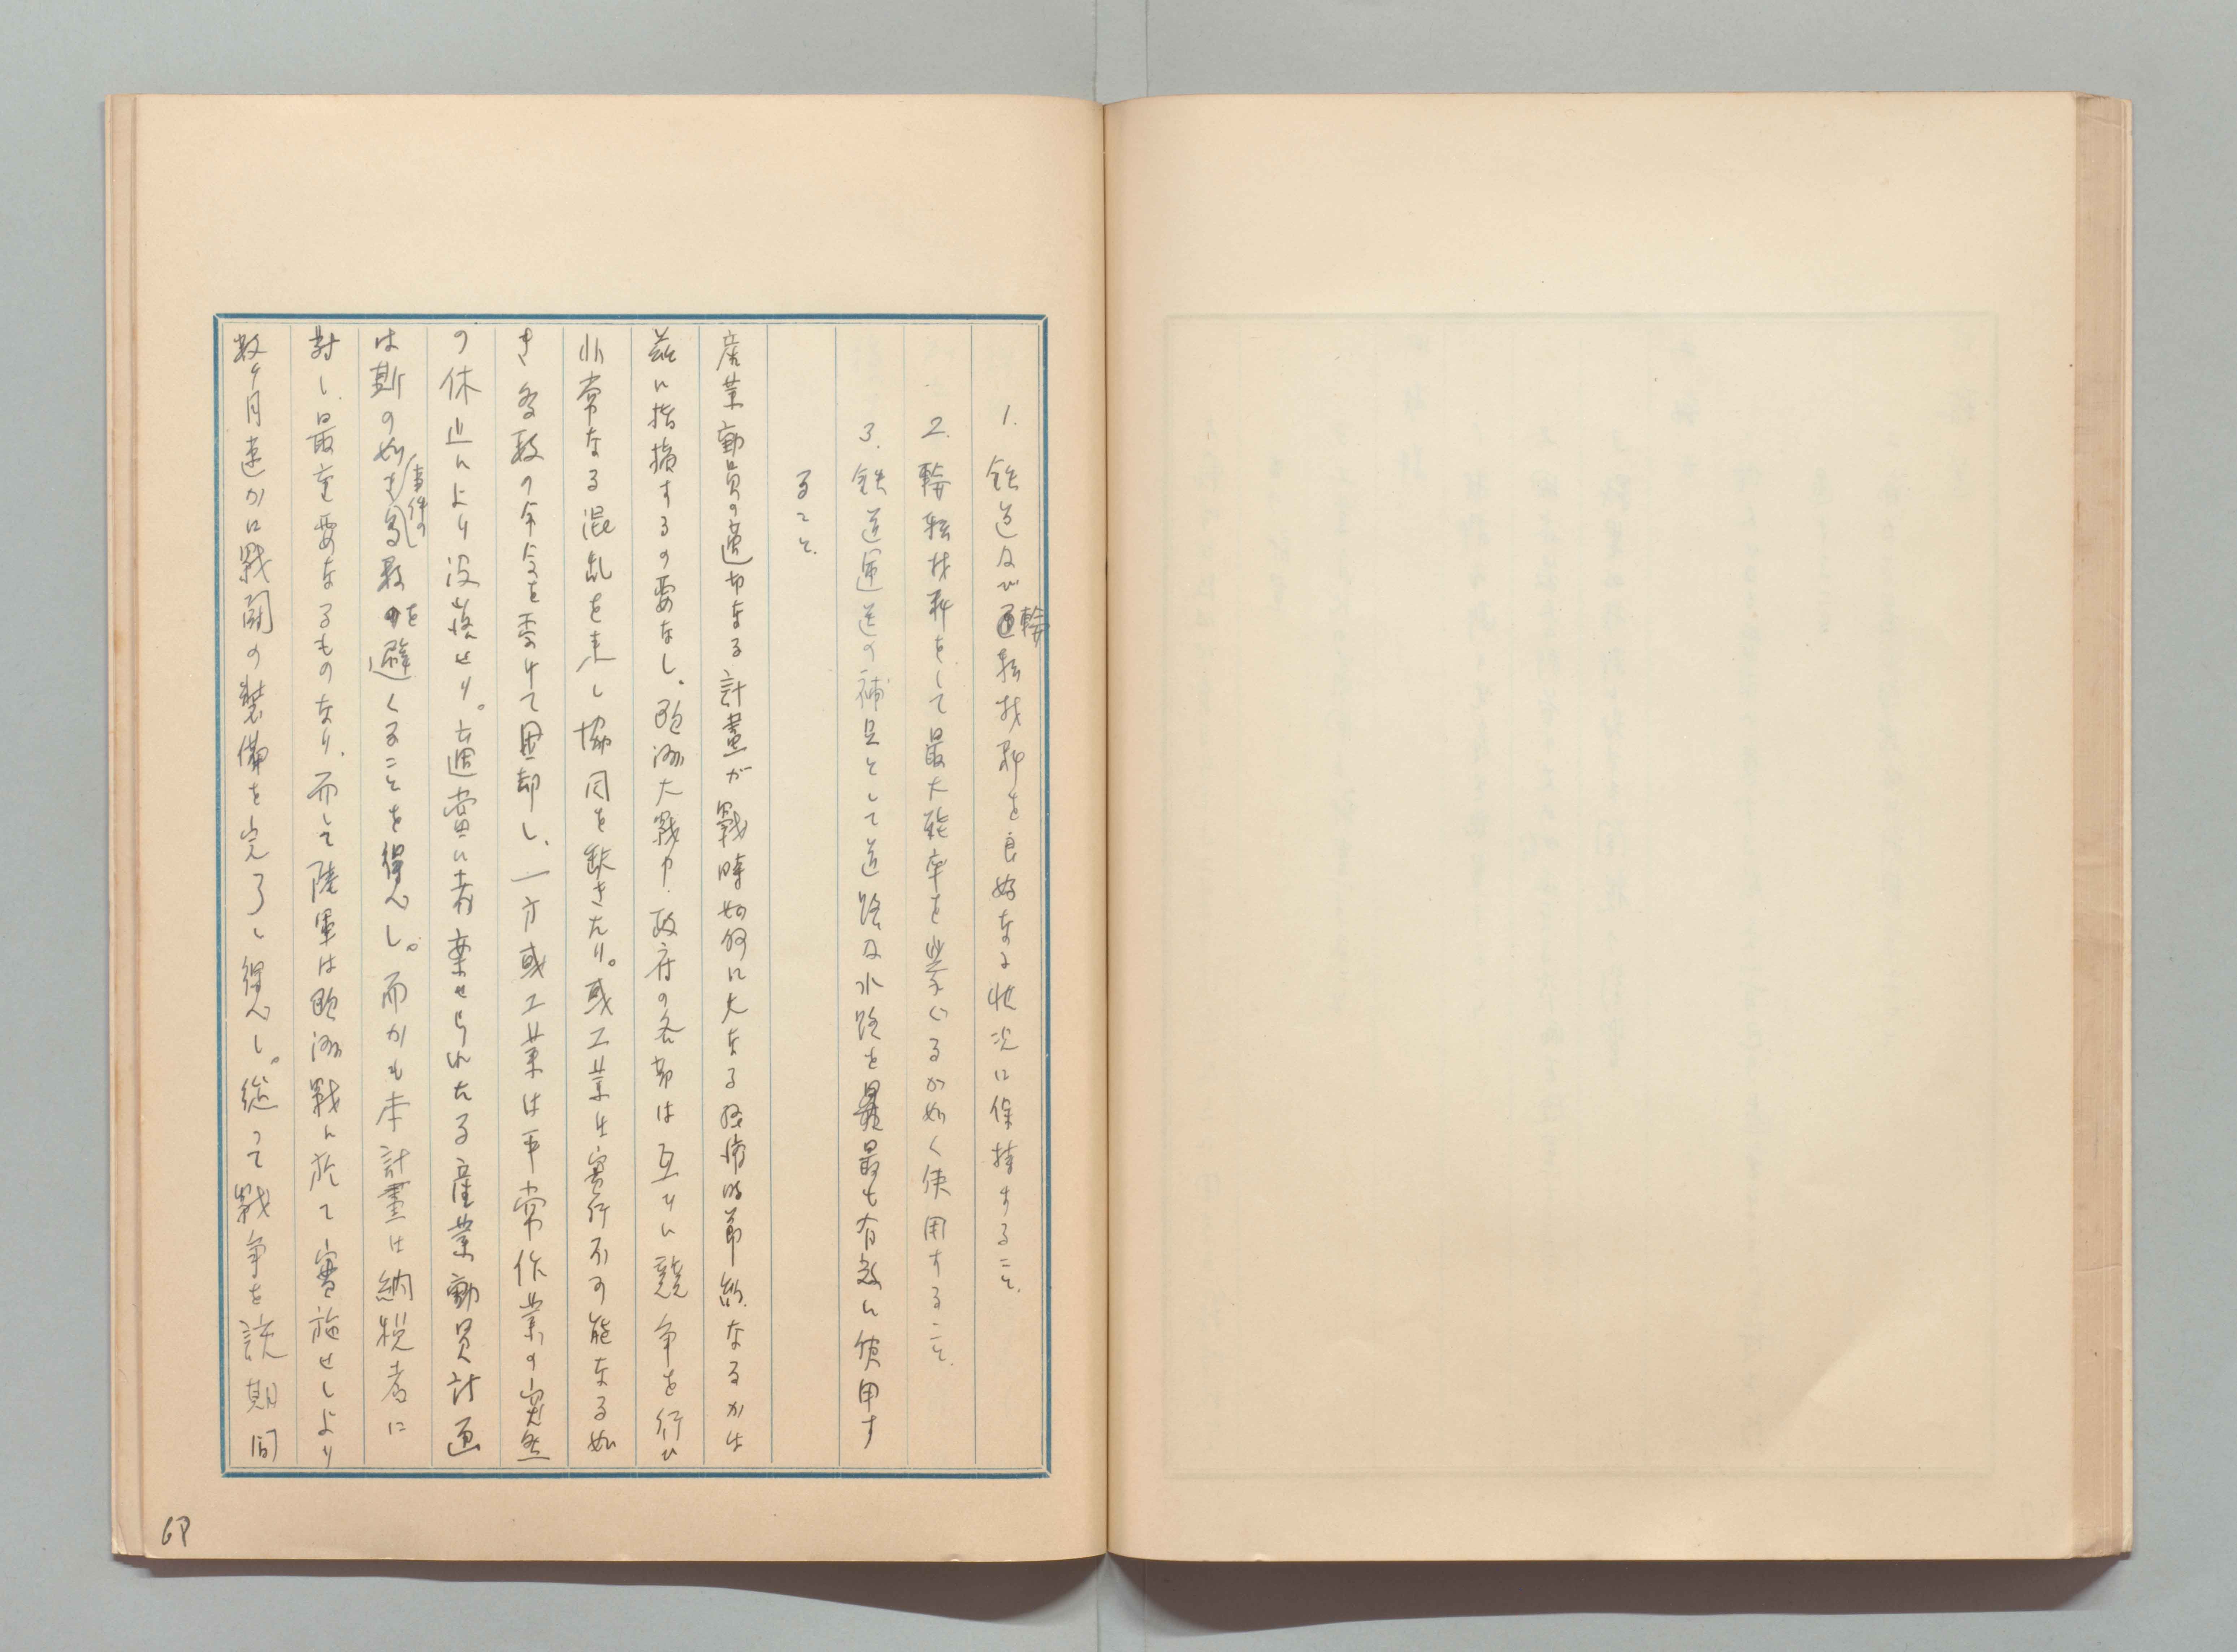 1. 鉄道及び輪転材料を良好なる状況に保持すること.
2. 輪転材料をして最大能率を挙ぐるが如く使用すること.
3. 鉄道運送の補足として道路及水路を最も有効に使用す
ること.
産業動員の適切なる計畫が戰時如何に大なる経済的節約なるかは
茲に指摘するの要なし。欧洲大戰中.政府の各部は互ひに競争を行ひ
非常なる混乱を来し協同を欠きたり。或工業は實行不可能なる如
き多数の命令を受けて困却し、一方或工業は平常作業の突然
の休止により没落せり。適當に考案せられたる産業動員計画
は斯の如き事件の多数を避くることを得べし。而かも本計畫は納税者に
対し、最重要なるものなり、而して陸軍は欧洲戰に於て實施せしより
数ヶ月速かに戰闘の装備を完了し得べし。従って戰争を該期間
68